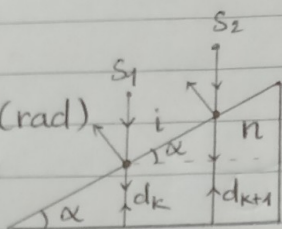 S2
S1
(rad) i n
α
α dk dk+1